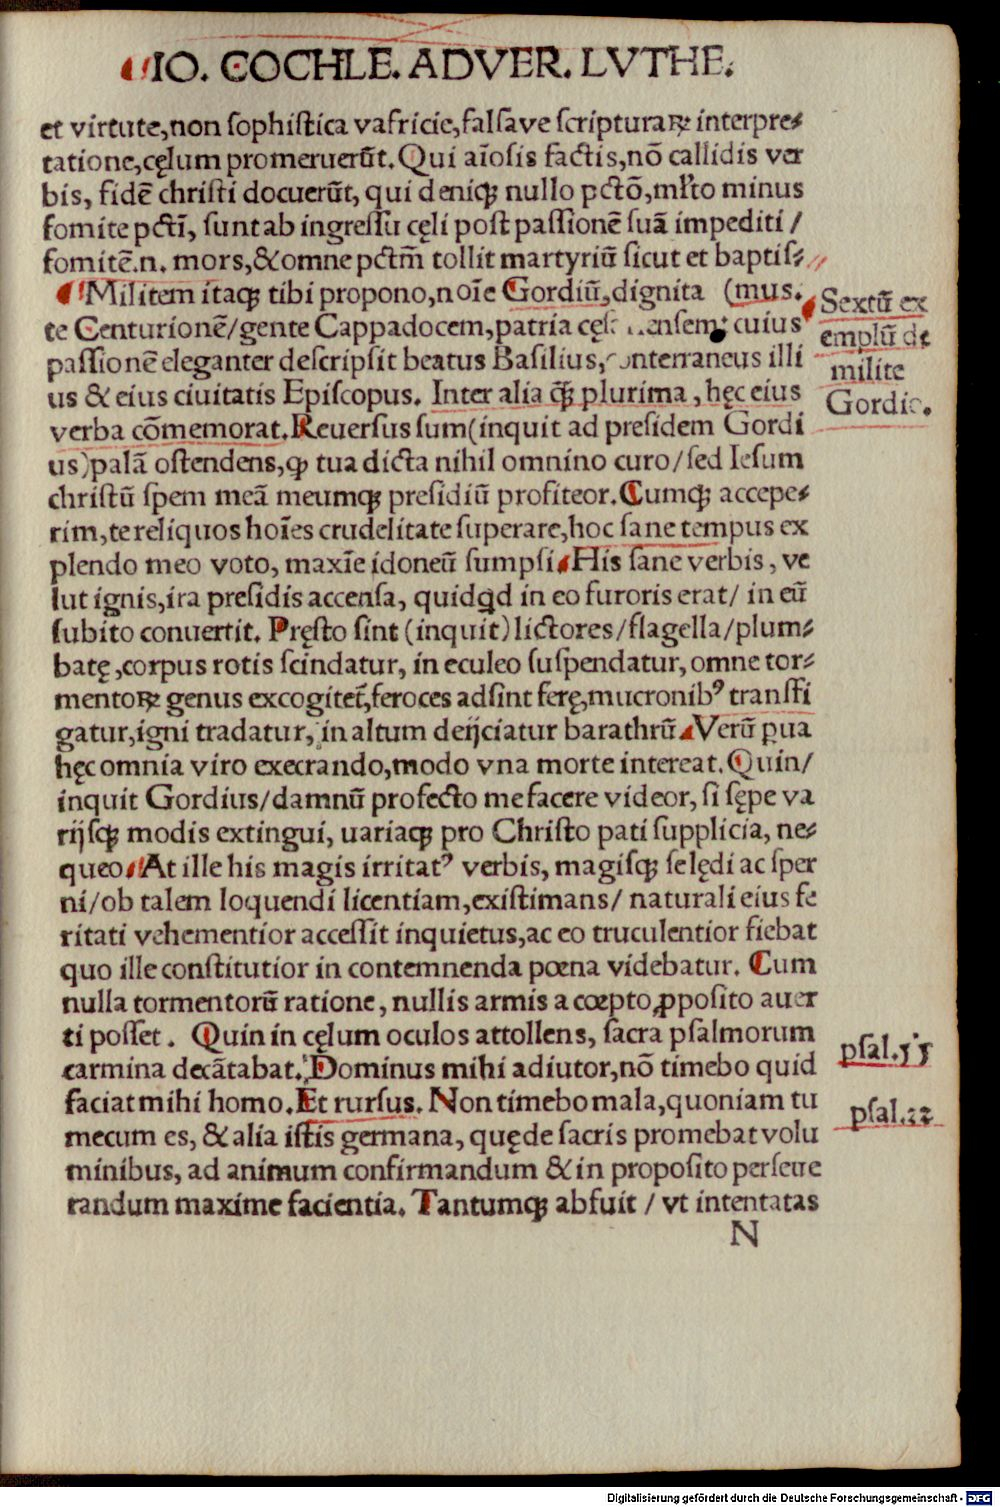 IO. COCHLE. ADVER. LVTHE.
et virtute,non ſophiſtica vafricie,falſave ſcripturaꝝ interpre⸗
tatione,cęlum promeruerūt. Qui aīoſis factis,nō callidis ver
bis, fidē chriſti docuerūt, qui deniqꝫ nullo pctō,ml̓to minus
fomite pctī, ſunt ab ingreſſu cęli poſt paſſionē ſuā impediti /
fomitē.n. mors,&omne pctm̄ tollit martyriū ſicut et baptiſ⸗
Militem itaqꝫ tibi propono,noīe Gordiū,dignita (mus.
te Centurionē/gente Cappadocem,patria cuius
paſſionē eleganter deſcripſit beatus Baſilius, conterraneus illi
us & eius ciuitatis Epiſcopus. Inter alia qꝫ̄ plurima , hęc eius
verba cōmemorat. Reuerſus ſum(inquit ad preſidem Gordi
us)palā oſtendens,ꝙ tua dicta nihil omnino curo/ſed Ieſum
chriſtū ſpem meā meumqꝫ preſidiū profiteor. Cumqꝫ accepe⸗
rim,te reliquos hoīes crudelitate ſuperare,hoc ſane tempus ex
plendo meo voto, maxīe idoneū ſumpſi. His ſane verbis, ve
lut ignis,ira preſidis accenſa, quidqd in eo furoris erat/ in eū
ſubito conuertit. Pręſto ſint (inquit) lictores/flagella/plum⸗
batę,corpus rotis ſcindatur, in eculeo ſuſpendatur, omne tor⸗
mentoꝝ genus excogitet̄,feroces adſint ferę,mucronibꝰ tranſfi
gatur,igni tradatur, in altum deijciatur barathrū. Verū pua
hęc omnia viro execrando,modo vna morte intereat. Quin/
inquit Gordius/damnū profecto me facere videor, ſi ſępe va
rijſqꝫ modis extingui, uariaqꝫ pro Chriſto pati ſupplicia, ne⸗
queo. At ille his magis irritatꝰ verbis, magiſqꝫ ſe lędi ac ſper
ni/ob talem loquendi licentiam,exiſtimans/ naturali eius fe
ritati vehementior acceſſit inquietus,ac eo truculentior fiebat
quo ille conſtitutior in contemnenda pœna videbatur. Cum
nulla tormentorū ratione, nullis armis a cœpto ꝓpoſito auer
ti poſſet. Quin in cęlum oculos attollens, ſacra pſalmorum
carmina decātabat. Dominus mihi adiutor,nō timebo quid
faciat mihi homo. Et rurſus. Non timebo mala,quoniam tu
mecum es, & alia iſtis germana, quę de ſacris promebat volu
minibus, ad animum confirmandum & in propoſito perſeue
randum maxime facientia. Tantumqꝫ abfuit / vt intentatas
N
Sextū ex
emplū de
milite
Gordio.
pſal.55
pſal.22
Digitalisierung gefördert durch die Deutsche Forschungsgemeinschaft - DFG